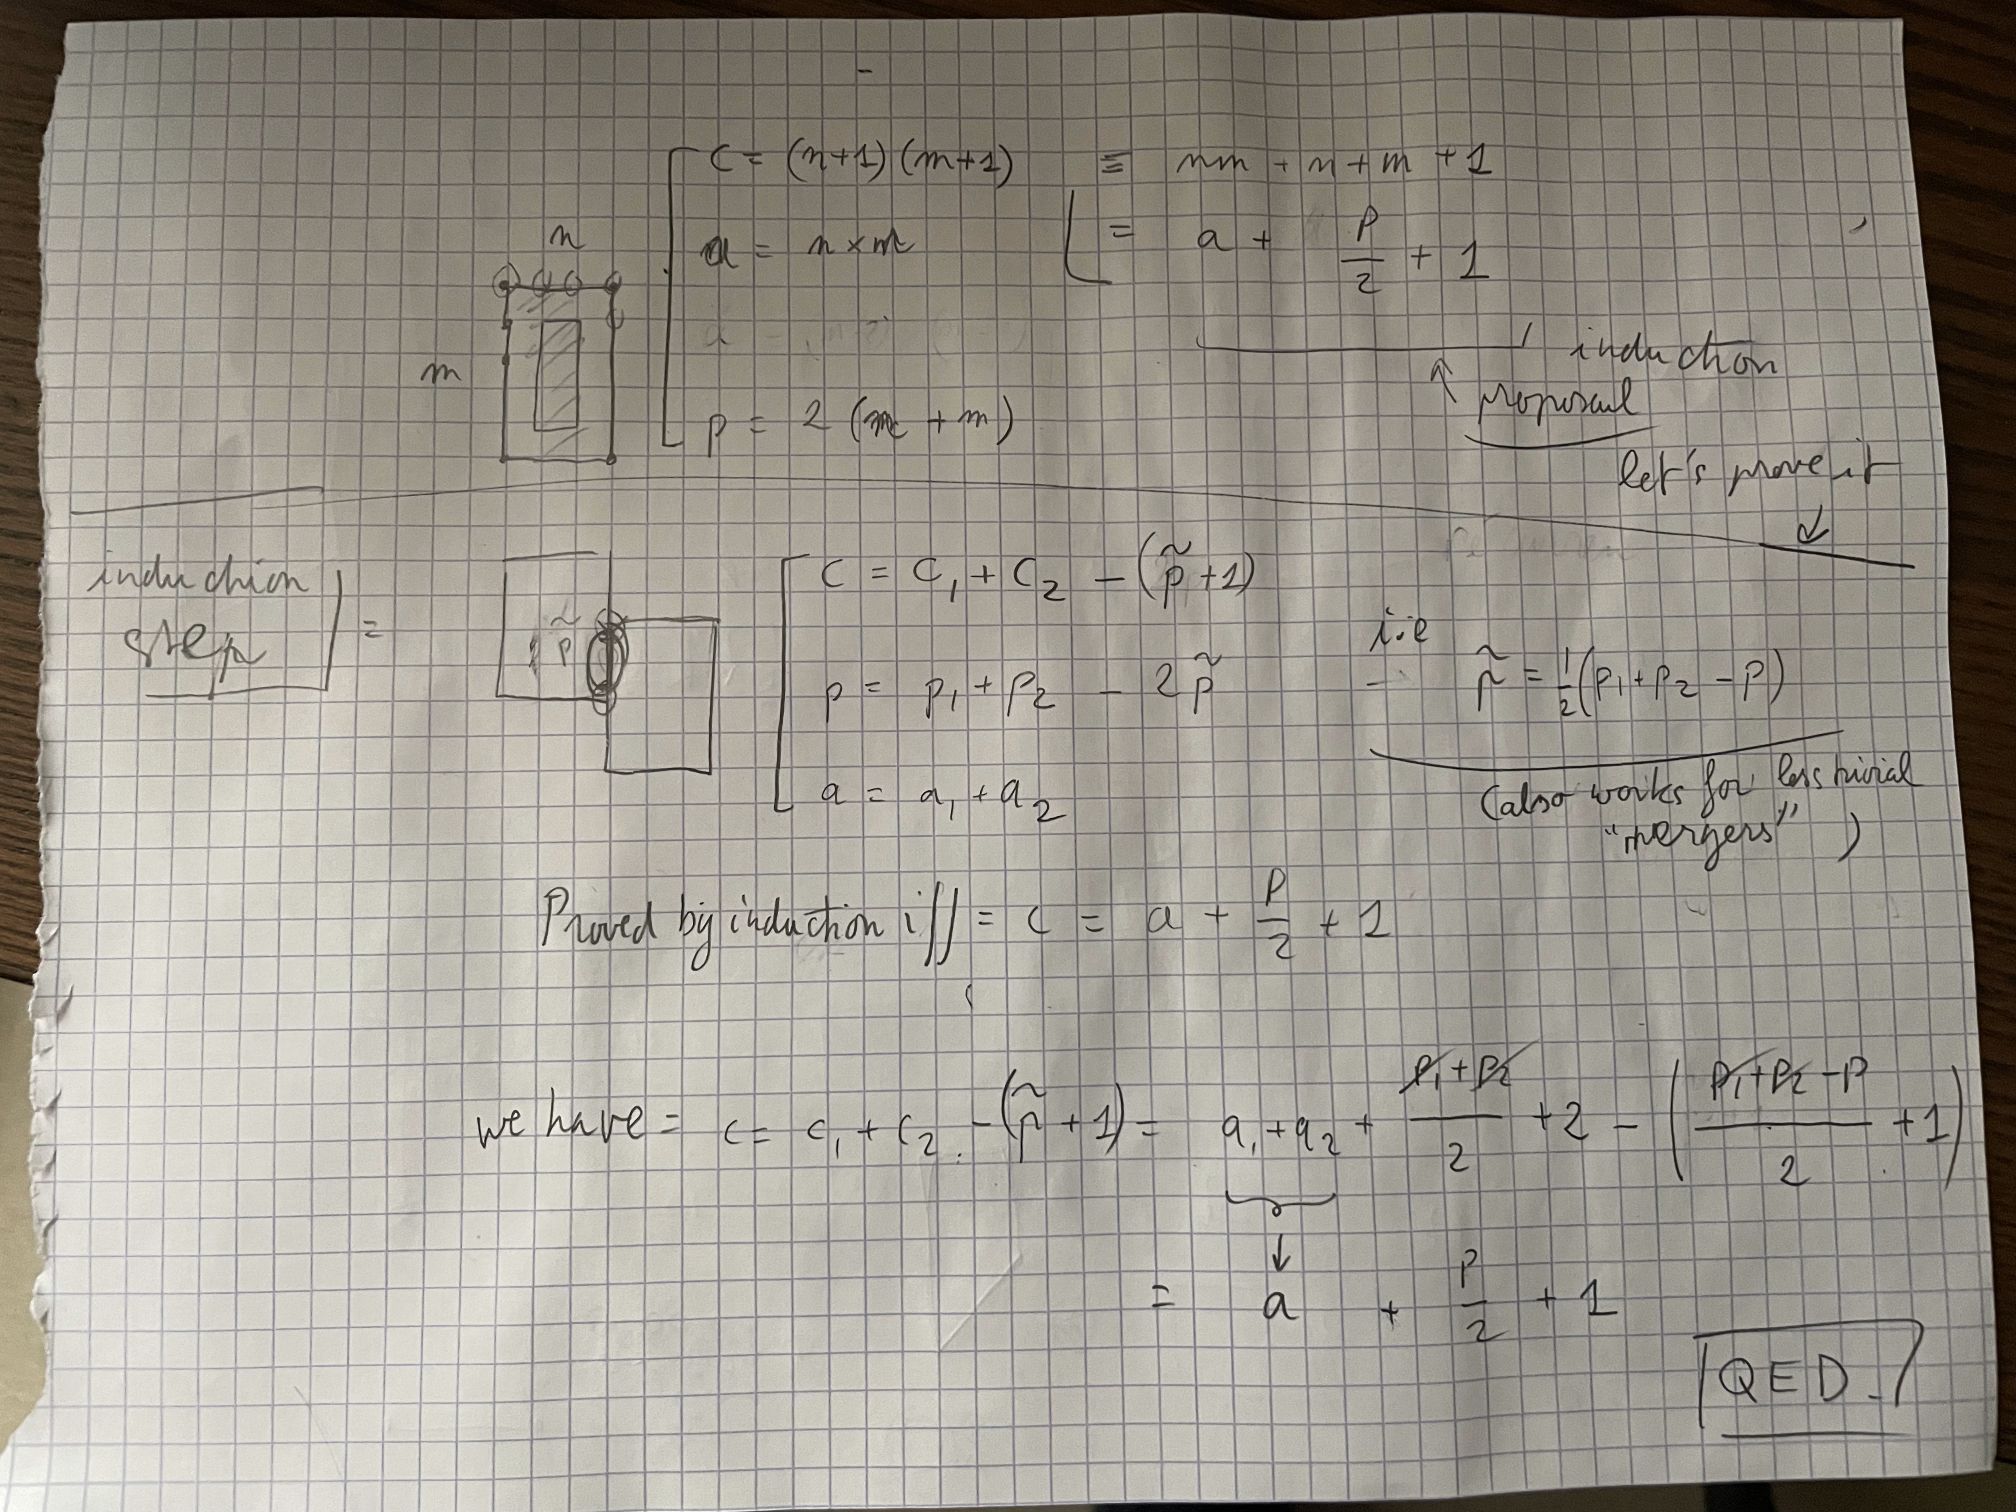 c = (n+1)(m+1) ≡ nm + n + m + 1
n
a = n × m
= a + p/2 + 1
m
p = 2 (m + m)
induction
↑ proposal
let's prove it
↓
induction
step
=
p̃
c = c₁ + c₂ − (p̃ + 1)
p = p₁ + p₂ − 2p̃
i.e p̃ = 1/2 (p₁ + p₂ − p)
a = a₁ + a₂
(also works for less trivial
"mergers")
Proved by induction iff = c = a + p/2 + 1
we have = c = c₁ + c₂ − (p̃ + 1) = a₁ + a₂ + (p₁ + p₂)/2 + 2 − ((p₁ + p₂ − p)/2 + 1)
↓
= a + p/2 + 1
QED.